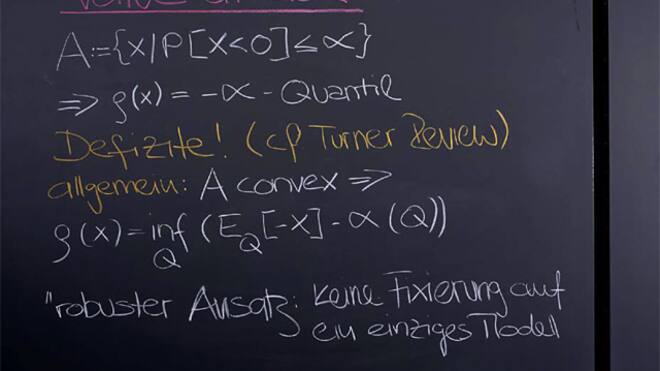 A:={X|P[X<0]≤α}
⇒ ρ(x) = -α-Quantil
Defizite! (cp Turner Review)
allgemein: A convex ⇒
ρ(x) = inf (E_Q[-X] - α(Q))
Q
"robuster Ansatz: keine Fixierung auf
ein einziges Modell